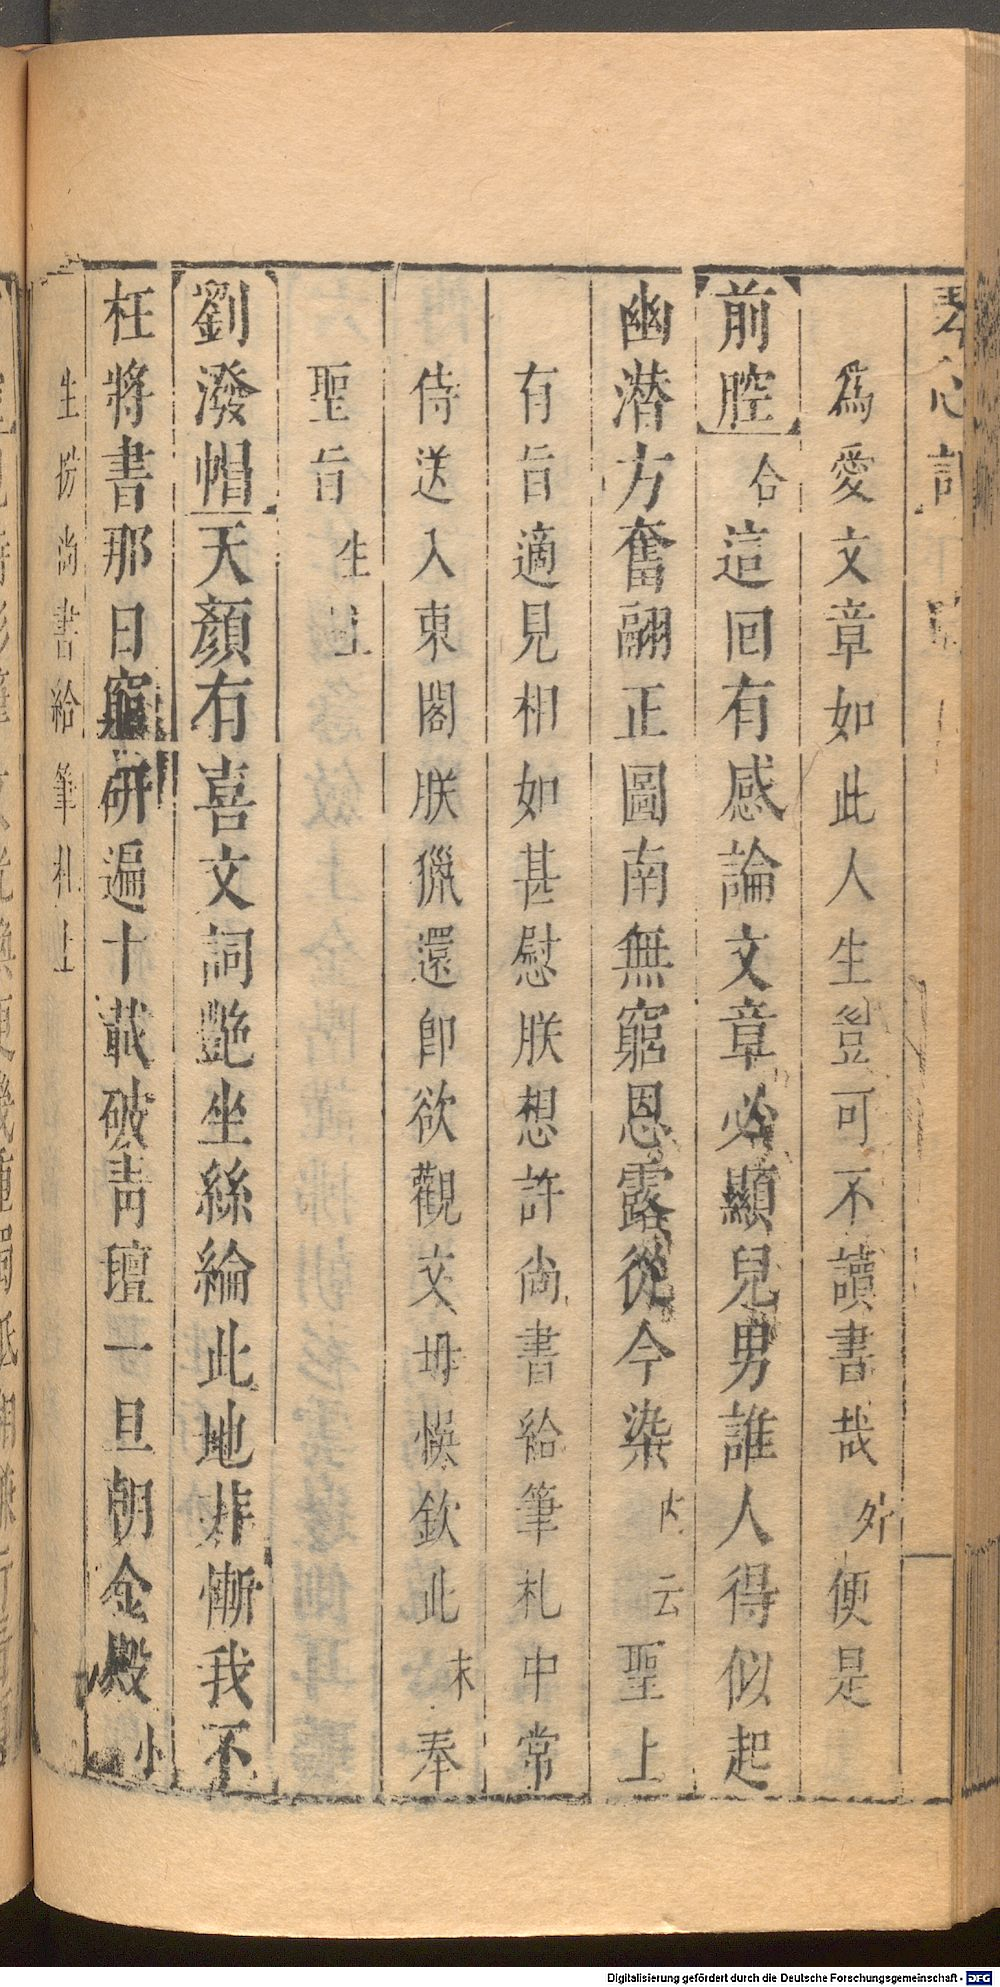 琴心記
為愛文章如此人生豈可不讀書哉外便是
前腔合這回有感論文章必顯兒男誰人得似起
幽潜方奮翮正圖南無窮恩露從今染內云聖上
有旨適見相如甚慰朕想許尚書給筆札中常
侍送入東閣朕獵還即欲觀文毋悞欽此末奉
聖旨生上
劉潑帽天顏有喜文詞艷坐絲綸此地非慚我不
枉將書那日窮研遍十載破青氊一旦朝金殿小
生扮尚書給筆札上
Digitalisierung gefördert durch die Deutsche Forschungsgemeinschaft - DFG